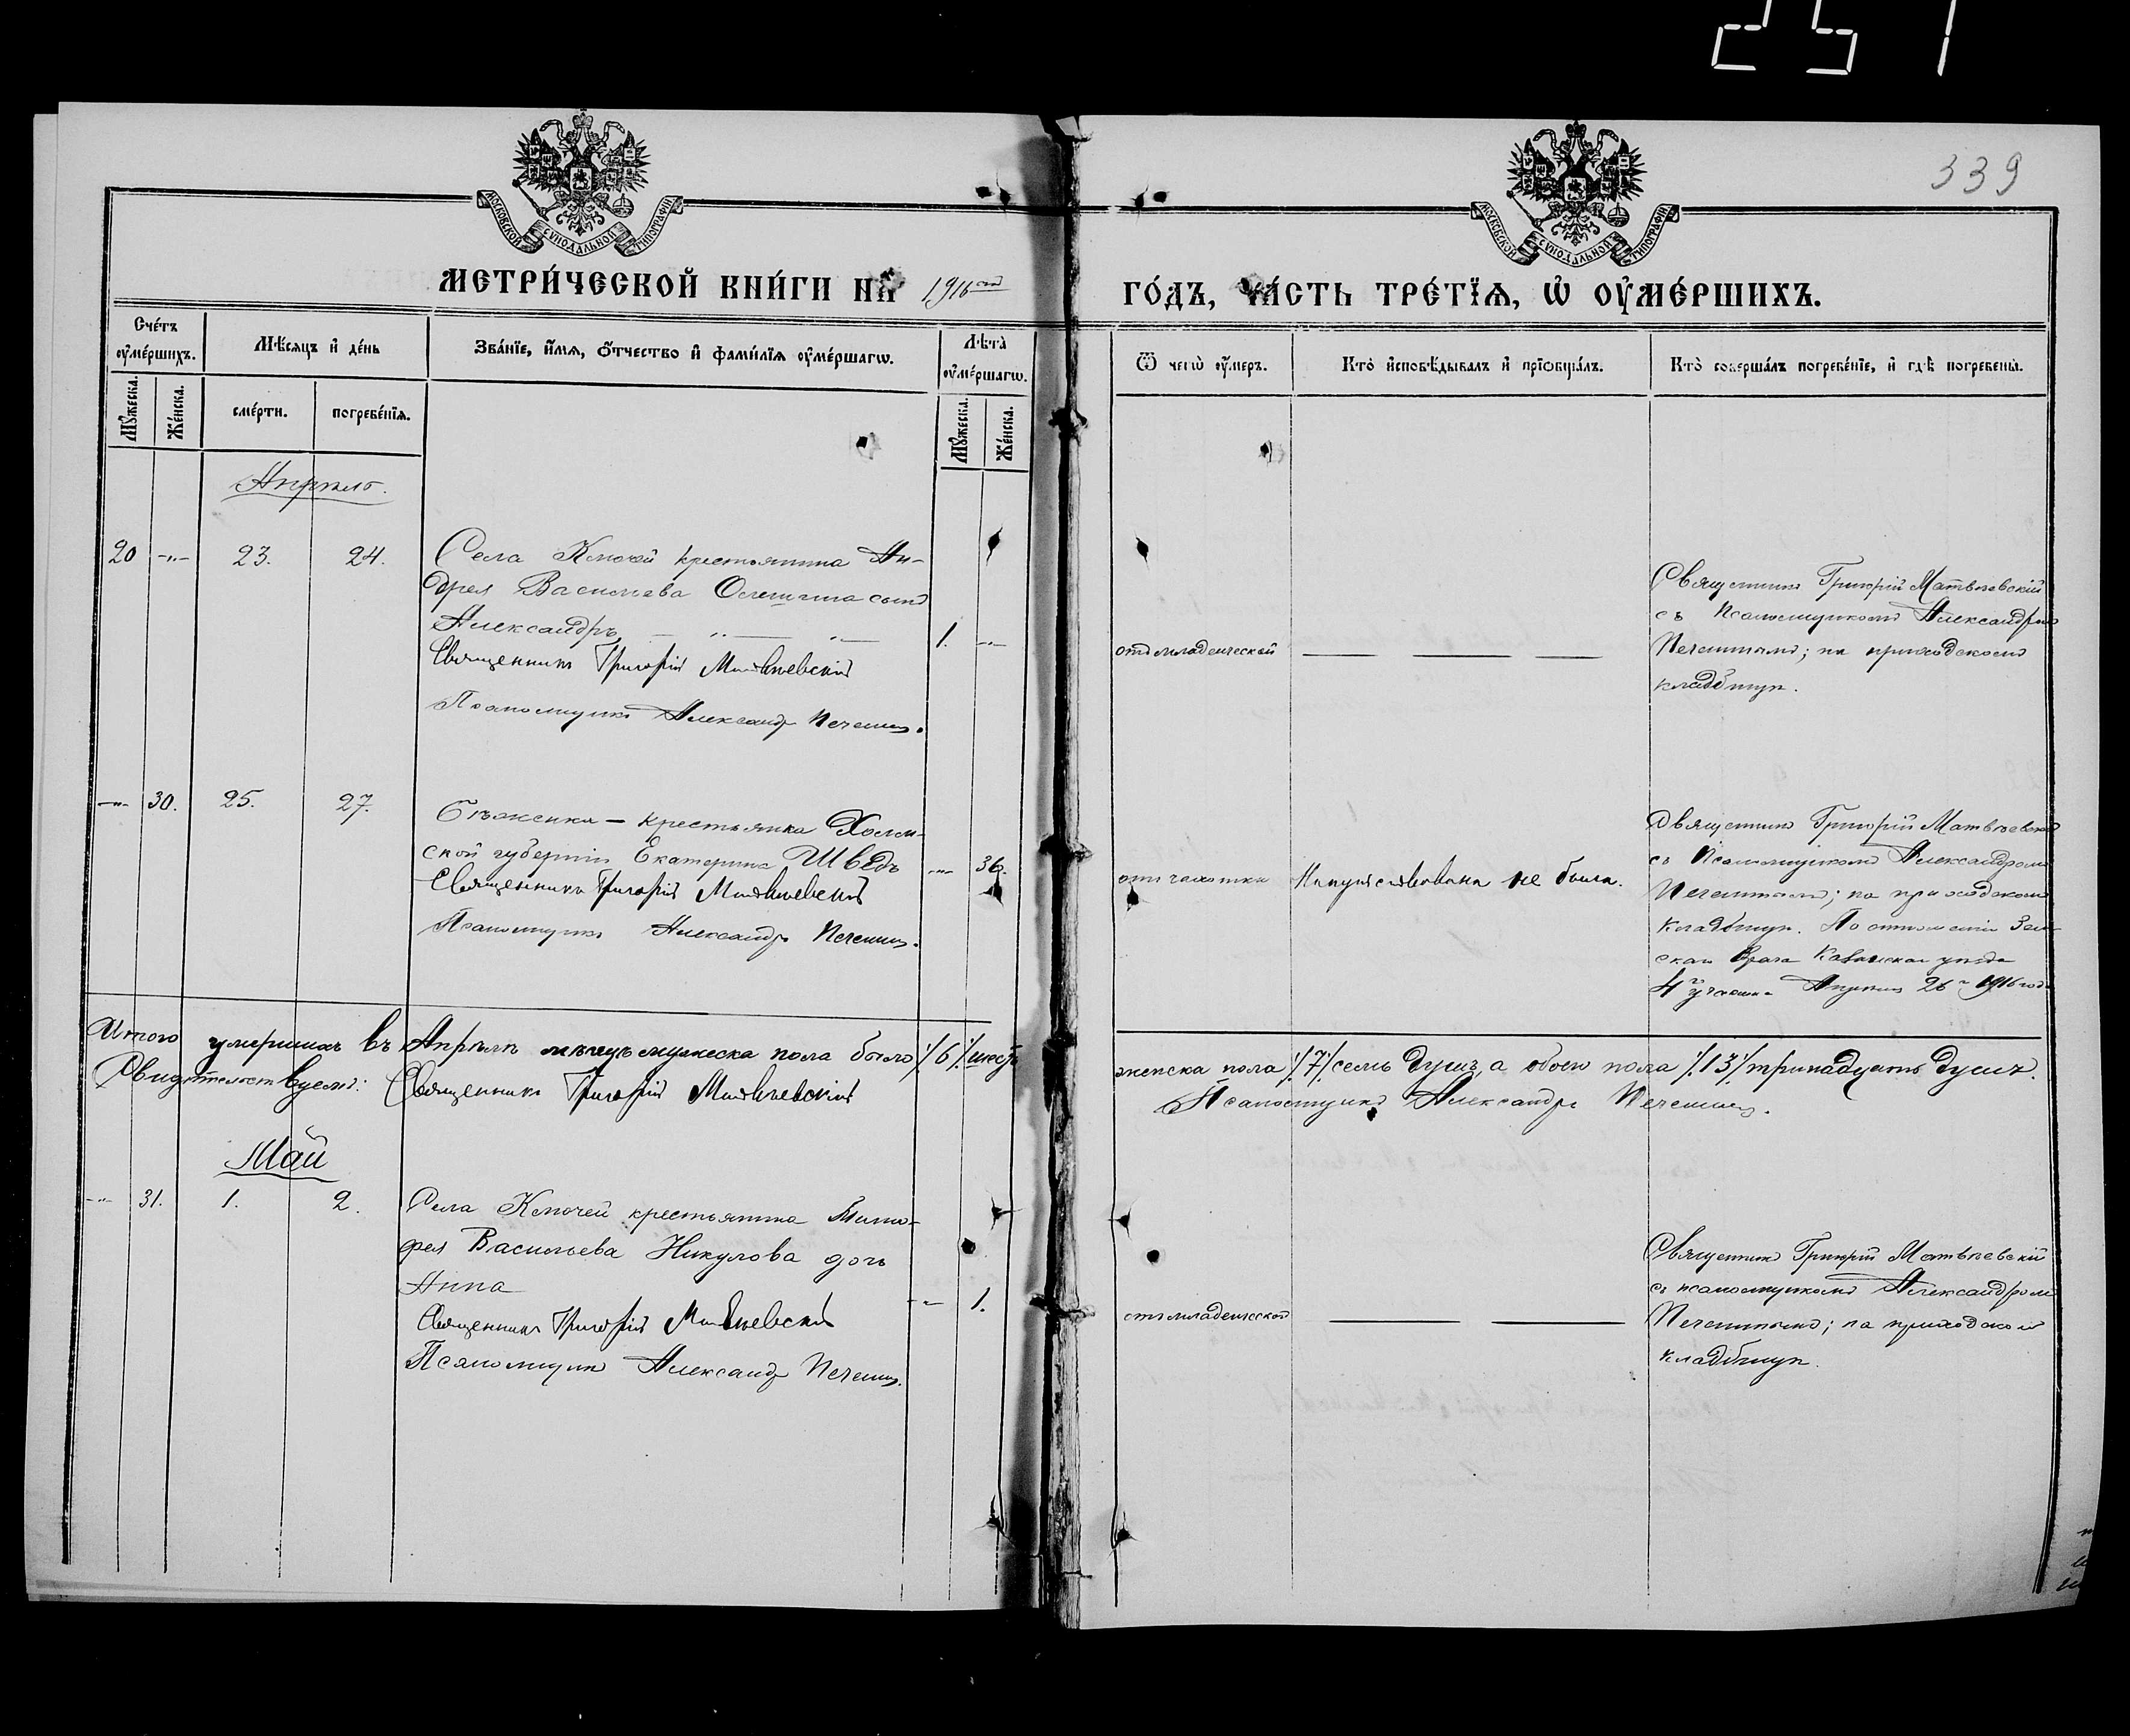 251
339
МОСКОВСКОЙ СѴНОДАЛЬНОЙ ТИПОГРАФІИ
МОСКОВСКОЙ СѴНОДАЛЬНОЙ ТИПОГРАФІИ
МЕТРИ́ЧЕСКОЙ КНИ́ГИ НА 1916ый ГО́ДЪ, ЧА́СТЬ ТРЕ́ТЇѦ, Ѡ҆ ОУ҆МЕ́РШИХЪ.
Сче́тъ оу҆ме́ршихъ.
Мѣ́сяцъ и҆ де́нь
Зва́нїе, и҆́мѧ, ѻ҆́тчество и҆ фамі́лїѧ оу҆ме́ршагѡ.
Лѣ́та оу҆ме́ршагѡ.
Ѿ чегѡ̀ оу҆́меръ.
Кто̀ и҆сповѣ́дывалъ и҆ прїѡбща́лъ.
Кто̀ соверша́лъ погребе́нїе, и҆ гдѣ̀ погребены̀.
Мꙋ́жеска. Же́нска.
сме́рти. погребе́нїѧ.
Мꙋ́жеска. Же́нска.
Апрѣль.
20 -"- 23. 24.
Села Ключей крестьянина Ан-
дрея Васильева сынъ
Александръ
Священникъ Григорій Матвѣевскій
Псаломщикъ Александръ Печенинъ.
1. -"-
отъ младенческой
Священникъ Григорій Матвѣевскій
съ Псаломщикомъ Александромъ
на приходскомъ
кладбищѣ.
-"- 30. 25. 27.
Бѣженка - крестьянка Холм-
ской губерніи Екатерина Шведъ
Священникъ Григорій Матвѣевскій
Псаломщикъ Александръ
-"- 36.
отъ чахотки
Напутствована не была.
Священникъ Григорій Матвѣевскій
съ Псаломщикомъ Александромъ
на приходскомъ
кладбищѣ. По отношенію Зем-
скаго Врача Казанскаго уѣзда
4го участка Апрѣля 26го 1916 года
Итого умершихъ въ Апрѣлѣ мѣсяцѣ мужеска пола было /6/ шесть
женска пола /7/ семь душъ, а обоего пола /13/ тринадцать душъ.
Свидѣтельствуемъ: Священникъ Григорій Матвѣевскій
Псаломщикъ Александръ
Май
-"- 31. 1. 2.
Села Ключей крестьянина
Васильева Никулова дочь
Анна
Священникъ Григорій Матвѣевскій
Псаломщикъ Александръ
-"- 1.
отъ младенческой
Священникъ Григорій Матвѣевскій
съ псаломщикомъ Александромъ
на приходскомъ
кладбищѣ.